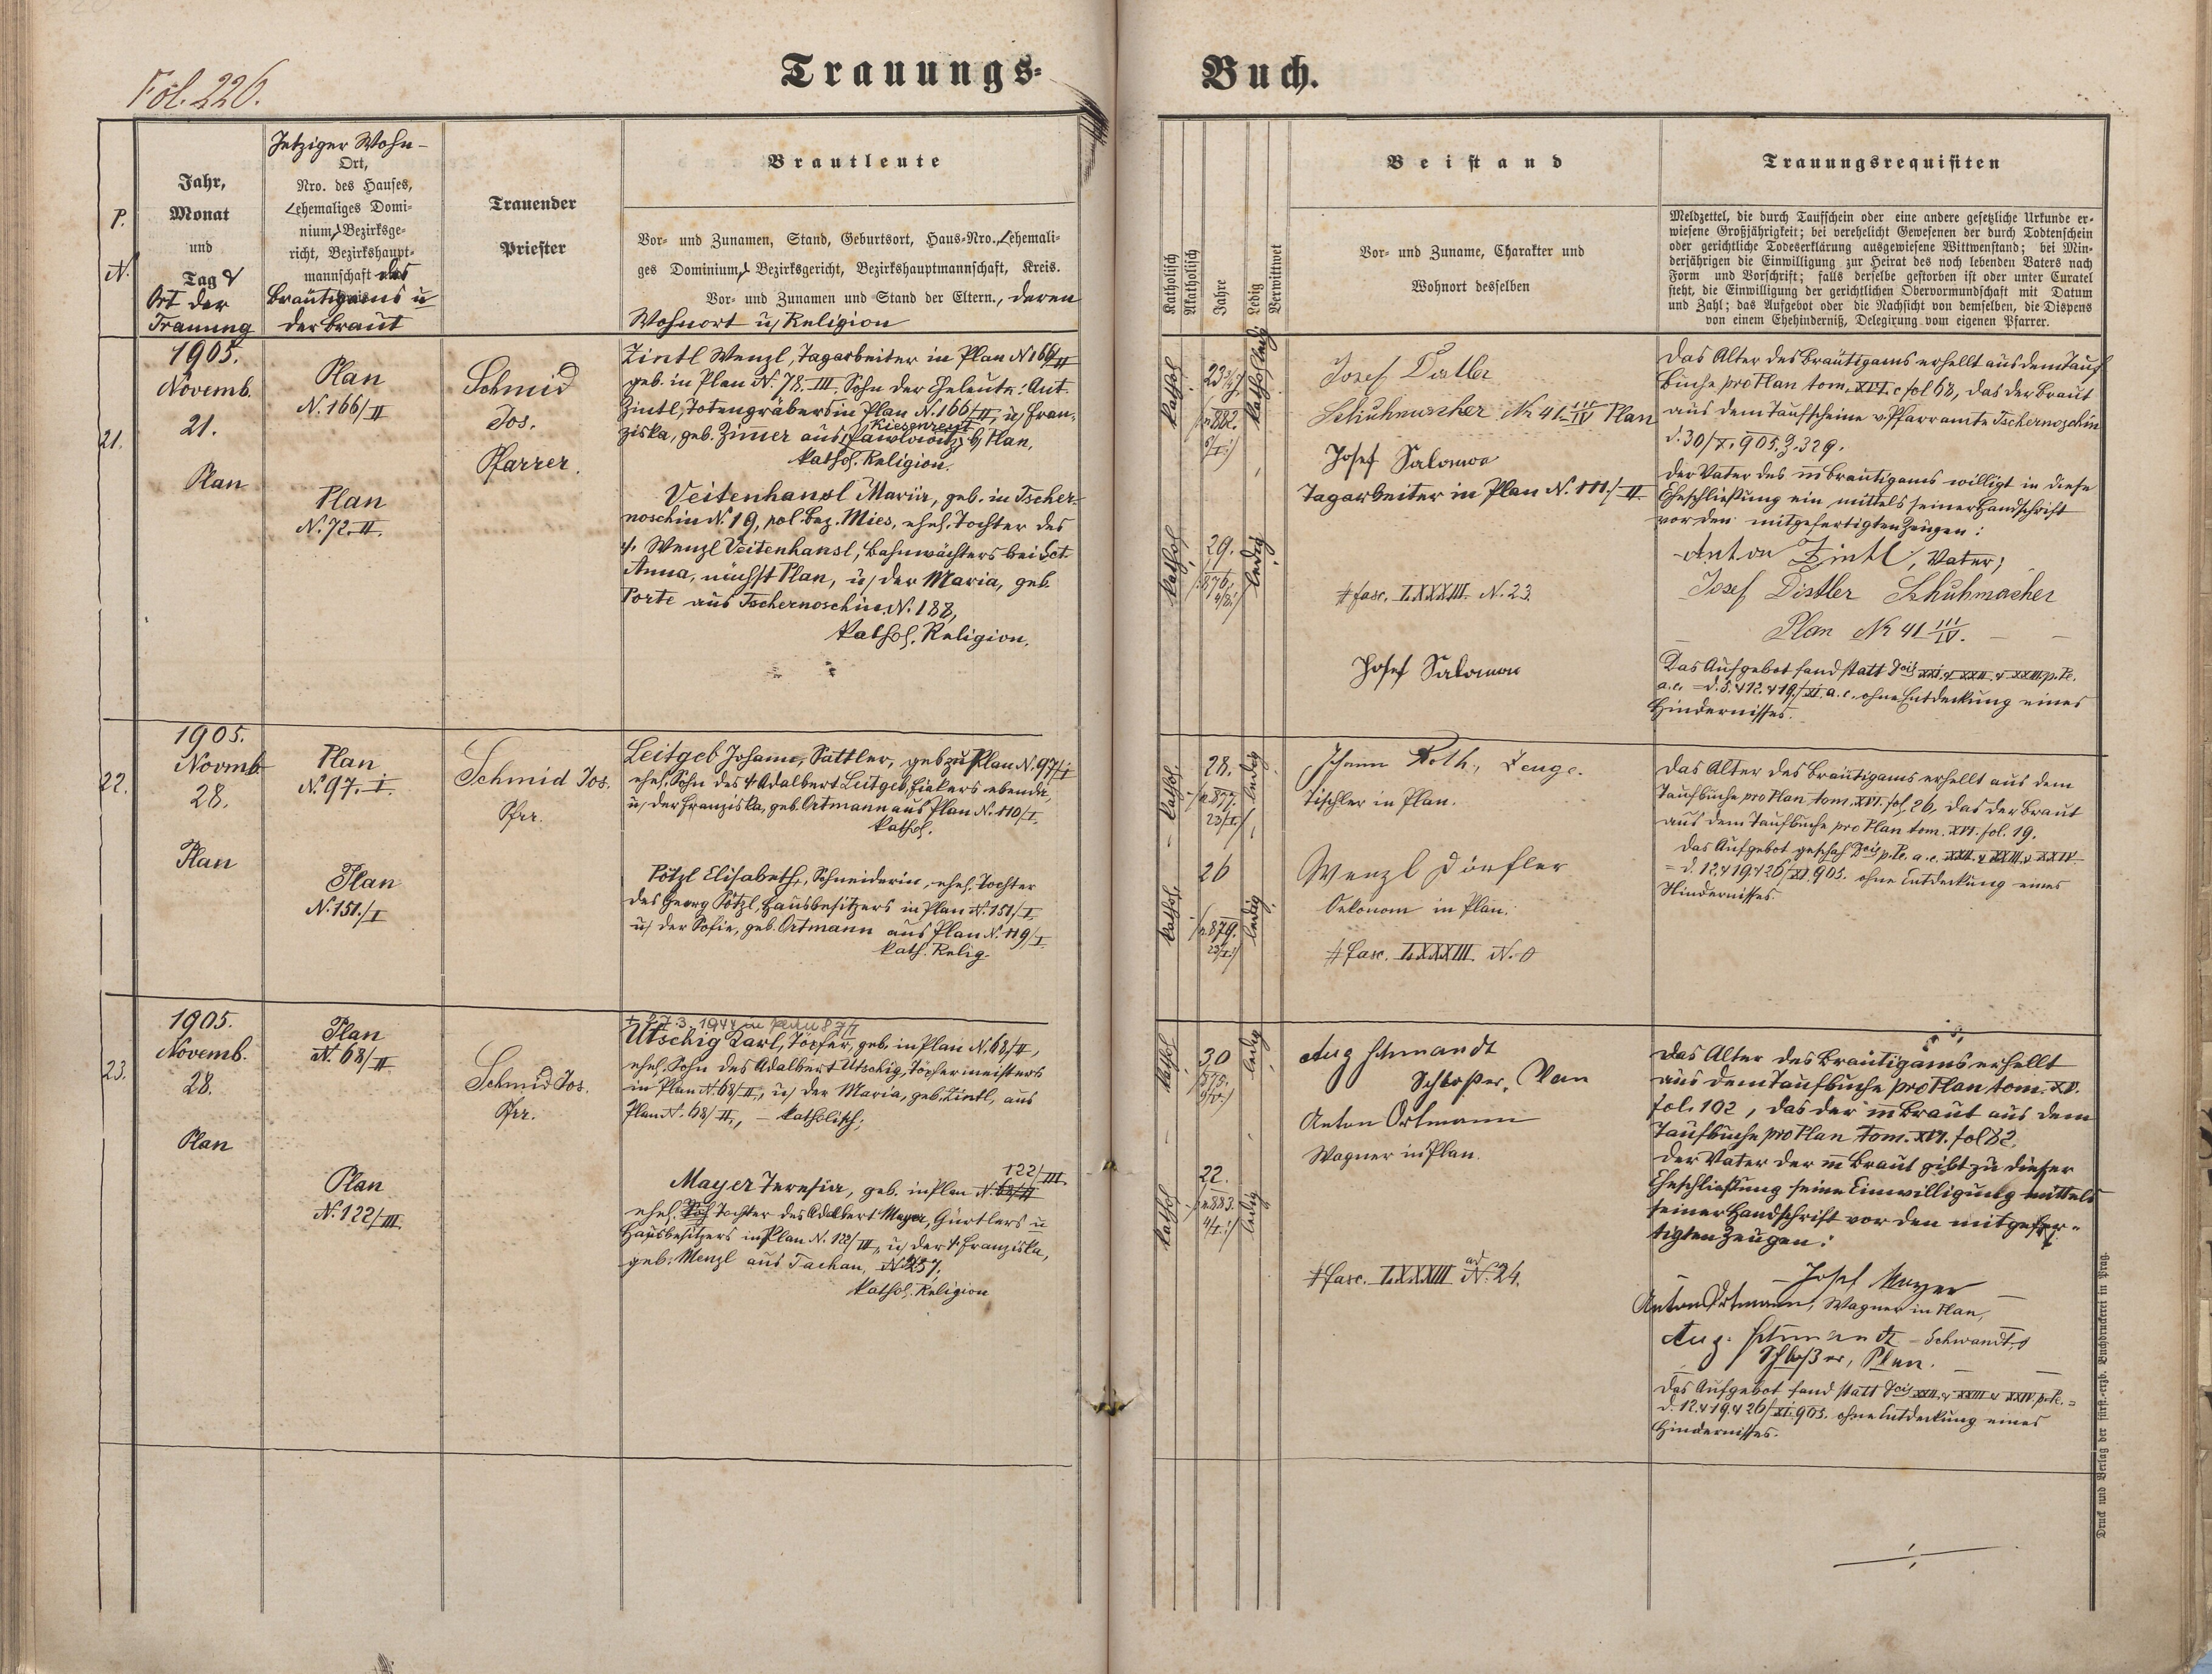 Fol. 226.
Trauungs-
Buch.
P.
N.
Jahr,
Monat
und
Tag &
Ort der
Trauung
Jetziger Wohn-
Ort,
Nro. des Hauses,
(ehemaliges Domi-
nium,) Bezirksge-
richt, Bezirkshaupt-
mannschaft des
Bräutigams u
der Braut
Trauender
Priester
Brautleute
Vor- und Zunamen, Stand, Geburtsort, Haus-Nro., (ehemali-
ges Dominium,) Bezirksgericht, Bezirkshauptmannschaft, Kreis.
Vor- und Zunamen und Stand der Eltern., deren
Wohnort u, Religion
Katholisch
Akatholisch
Jahre
Ledig
Verwittwet
Beistand
Vor- und Zuname, Charakter und
Wohnort desselben
Trauungsrequisiten
Meldzettel, die durch Taufschein oder eine andere gesetzliche Urkunde er-
wiesene Großjährigkeit; bei verehelicht Gewesenen der durch Todtenschein
oder gerichtliche Todeserklärung ausgewiesene Wittwenstand; bei Min-
derjährigen die Einwilligung zur Heirat des noch lebenden Vaters nach
Form und Vorschrift; falls derselbe gestorben ist oder unter Curatel
steht, die Einwilligung der gerichtlichen Obervormundschaft mit Datum
und Zahl; das Aufgebot oder die Nachsicht von demselben, die Dispens
von einem Ehehinderniß, Delegirung vom eigenen Pfarrer.
21.
1905.
Novemb.
21.
Plan
Plan
N. 166/II
Plan
N. 72. II.
Schmid
Jos.
Pfarrer.
Zintl Wenzl, Tagarbeiter in Plan N 166/II
geb. in Plan N. 78. III. Sohn der Eheleute: Ant.
Zintl, Totengräbers in Plan N. 166/II, u, Fran-
ziska, geb. Zimmer aus Pawlowitz b, Plan,
Kathol. Religion.
Veitenhansl Maria, geb. in Tscher-
noschin N. 19, pol. Bez. Mies, ehel. Tochter des
†. Wenzl Veitenhansl, Bahnwächters bei Sct.
Anna, nächst Plan, u, der Maria, geb.
Porte aus Tschernoschin N. 188,
Kathol. Religion.
kathol
29.
ledig
Josef Distler
Schuhmacher Nr 41 III/IV Plan
Josef Salomon
Tagarbeiter in Plan N. 111./II
# fasc. LXXXIII. N. 23.
Josef Salomon
Das Alter des Bräutigams erhellt aus dem Tauf
buche pro Plan tom. XVI. c fol 68, das der Braut
aus dem Taufscheine v. Pfarramte Tschernoschin
d. 30/X. 905. Z. 329.
Der Vater des m Bräutigams willigt in diese
Eheschließung ein mittels seiner Handschrift
vor den mitgefertigten Zeugen:
Anton Zintl, Vater;
Josef Distler Schuhmacher
Plan Nr 41 III/IV.
Das Aufgebot fand statt Dcis XXI. & XXII. & XXIII p. Pe.
a. c. = d. 5. & 12. & 19./XI. a. c. ohne Entdeckung eines
Hindernisses.
22.
1905.
Novmb
28.
Plan
Plan
N. 97. I.
Plan
N. 151./I
Schmid Jos.
Pfrr.
Leitgeb Johann, Sattler, geb zu Plan N. 97/I
ehel. Sohn des † Adalbert Leitgeb, Fiakers ebenda,
u, der Franziska, geb. Ortmann aus Plan N. 110/I.
Kathol.
Pötzl Elisabeth, Schneiderin, ehel. Tochter
des Georg Pötzl, Hausbesitzers in Plan N. 151/I,
u, der Sofie, geb. Ortmann aus Plan N. 119/I.
kath. Relig.
kathol.
28.
877.
23/I.
ledig
kathol.
26
879.
23/I.
ledig
Johann Roth, Zeuge.
Tischler in Plan.
Wenzl Dörfler
Oekonom in Plan.
# fasc. LXXXIII. N. 0
Das Alter des Bräutigams erhellt aus dem
Taufbuche pro Plan tom. XVI. fol. 26, das der Braut
aus dem Taufbuche pro Plan tom. XVI. fol. 19.
Das Aufgebot geschah Dcis p. Pe. a. c. XXII. & XXIII. & XXIV.
= d. 12. & 19 & 26/XI. 905. ohne Entdeckung eines
Hindernisses.
23.
1905.
Novemb.
28.
Plan
Plan
N. 68/II
Plan
N. 122/III
Schmid Jos.
Pfrr.
† 27.3.1944 in Plan
Utschig Karl, Töpfer, geb. in Plan N. 68/II,
ehel. Sohn des Adalbert Utschig, Töpfermeisters
in Plan N. 68/II, u, der Maria, geb. Zintl, aus
Plan N. 68/II, – katholisch;
122/III.
Mayer Teresia, geb. in Plan N. 68/II
ehel. Tochter des Adalbert Mayer, Gürtlers u
Hausbesitzers in Plan N. 122/III, u, der †. Franziska,
geb. Menzl aus Tachau, N. 257,
Kathol. Religion
kathol
30
ledig
kathol
22.
883.
4/I.
ledig
Aug Schwandt
Schloßer, Plan
Anton Ortmann
Wagner in Plan.
# fasc. LXXXIII ad N. 24.
Das Alter des Bräutigams erhellt
aus dem Taufbuche pro Plan tom. XV.
fol. 102, das der m Braut aus dem
Taufbuche pro Plan tom. XVI. fol 82.
Der Vater der m Braut gibt zu dieser
Eheschließung seine Einwilligung mittels
seiner Handschrift vor den mitgefer-
tigten Zeugen:
Josef Mayer
Anton Ortmann, Wagner in Plan,
Aug. Schwandt – Schwandt,
Schloßer, Plan.
Das Aufgebot fand statt Dcis XXII. & XXIII & XXIV p. Pe. =
d. 12. & 19. & 26/XI. 905. ohne Entdeckung eines
Hindernisses.
Druck und Verlag der fürst.-erzb. Buchdruckerei in Prag.